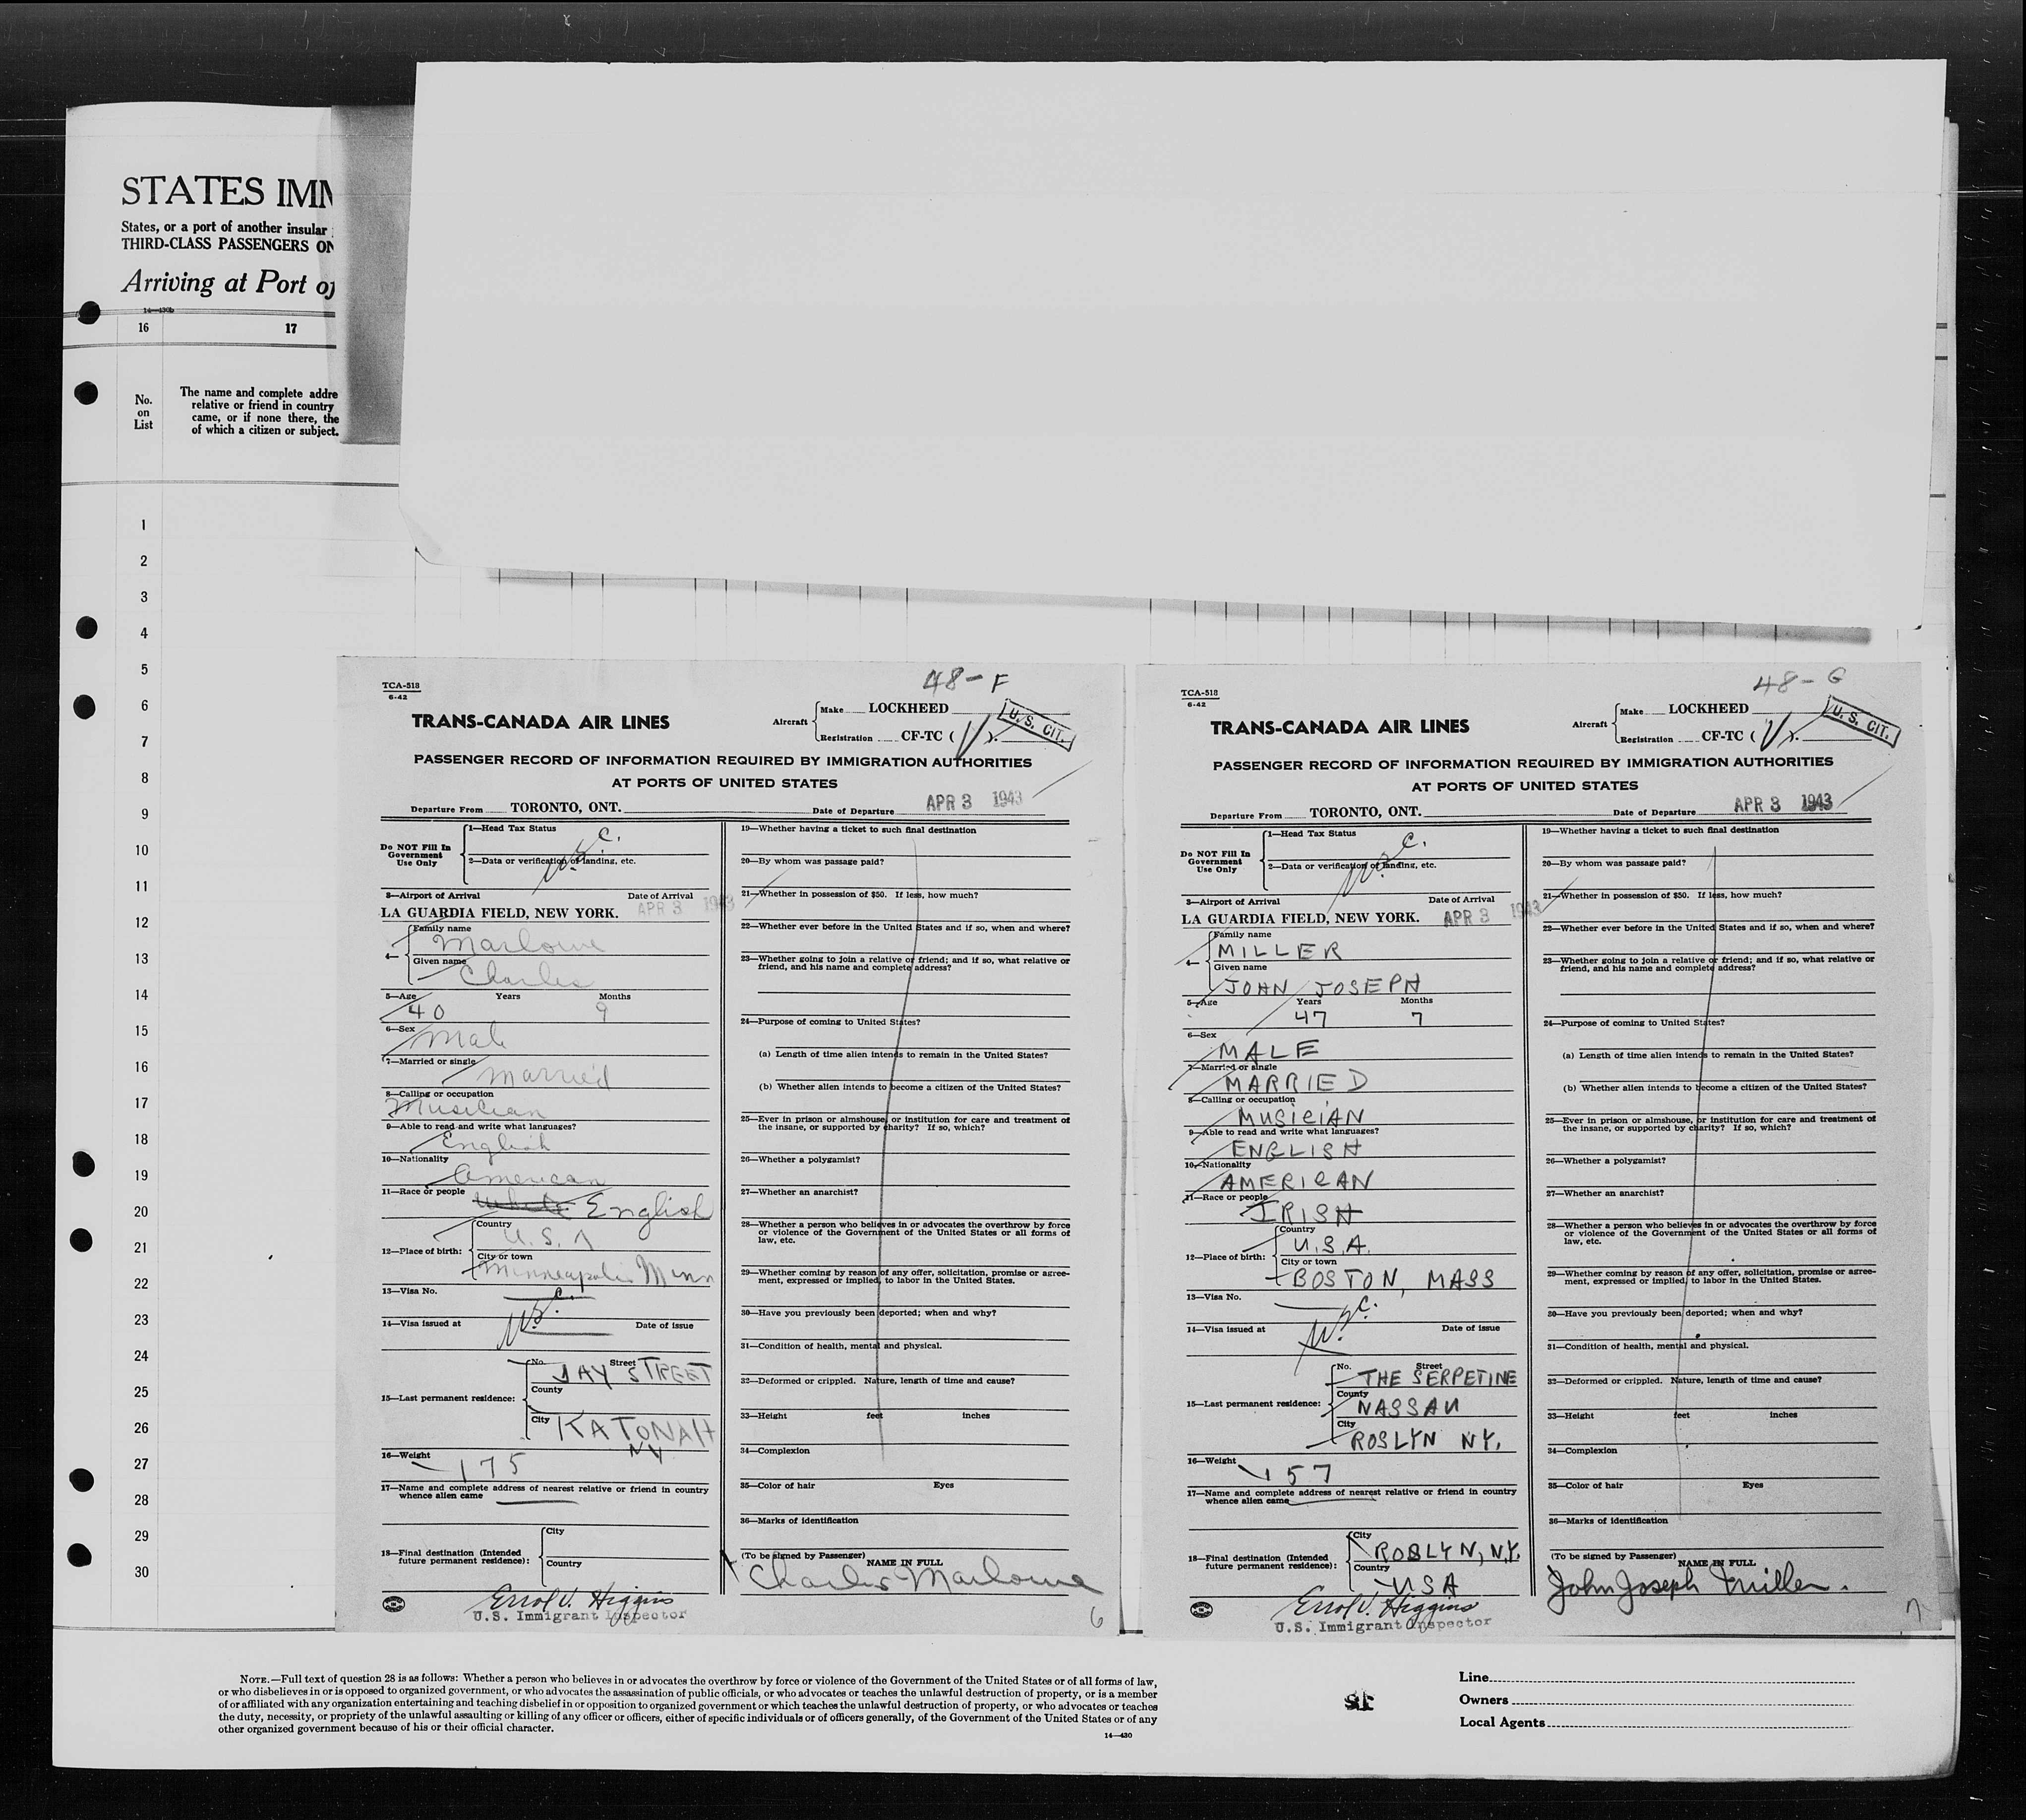 STATES IMM
States, or a port of another insular
THIRD-CLASS PASSENGERS ON
Arriving at Port of
14—430b
16 17
No.
on
List
The name and complete addre
relative or friend in country
came, or if none there, the
of which a citizen or subject.
1
2
3
4
5
6
7
8
9
10
11
12
13
14
15
16
17
18
19
20
21
22
23
24
25
26
27
28
29
30
48-F
TCA-518
6-42
TRANS-CANADA AIR LINES
Aircraft
Make LOCKHEED
Registration CF-TC ( V ).
U. S. CIT.
PASSENGER RECORD OF INFORMATION REQUIRED BY IMMIGRATION AUTHORITIES
AT PORTS OF UNITED STATES
Departure From TORONTO, ONT. Date of Departure APR 3 1943
Do NOT Fill In
Government
Use Only
1—Head Tax Status
2—Data or verification of landing, etc.
3—Airport of Arrival Date of Arrival
LA GUARDIA FIELD, NEW YORK. APR 3 1943
4—
Family name
Marlowe
Given name
Charles
5—Age Years Months
40 9
6—Sex
Male
7—Married or single
Married
8—Calling or occupation
Musician
9—Able to read and write what languages?
English
10—Nationality
American
11—Race or people
White English
12—Place of birth:
Country
U.S.A
City or town
Minneapolis Minn
13—Visa No.
14—Visa issued at Date of issue
15—Last permanent residence:
No. Street
JAY STREET
County
City KATONAH
NY
16—Weight
175
17—Name and complete address of nearest relative or friend in country
whence alien came
18—Final destination (Intended
future permanent residence):
City
Country
Errol V. Higgins
U.S. Immigrant Inspector
19—Whether having a ticket to such final destination
20—By whom was passage paid?
21—Whether in possession of $50. If less, how much?
22—Whether ever before in the United States and if so, when and where?
23—Whether going to join a relative or friend; and if so, what relative or
friend, and his name and complete address?
24—Purpose of coming to United States?
(a) Length of time alien intends to remain in the United States?
(b) Whether alien intends to become a citizen of the United States?
25—Ever in prison or almshouse, or institution for care and treatment of
the insane, or supported by charity? If so, which?
26—Whether a polygamist?
27—Whether an anarchist?
28—Whether a person who believes in or advocates the overthrow by force
or violence of the Government of the United States or all forms of
law, etc.
29—Whether coming by reason of any offer, solicitation, promise or agree-
ment, expressed or implied, to labor in the United States.
30—Have you previously been deported; when and why?
31—Condition of health, mental and physical.
32—Deformed or crippled. Nature, length of time and cause?
33—Height feet inches
34—Complexion
35—Color of hair Eyes
36—Marks of identification
(To be signed by Passenger)
NAME IN FULL
Charles Marlowe
6
48-G
TCA-518
6-42
TRANS-CANADA AIR LINES
Aircraft
Make LOCKHEED
Registration CF-TC ( V ).
U. S. CIT.
PASSENGER RECORD OF INFORMATION REQUIRED BY IMMIGRATION AUTHORITIES
AT PORTS OF UNITED STATES
Departure From TORONTO, ONT. Date of Departure APR 3 1943
Do NOT Fill In
Government
Use Only
1—Head Tax Status
2—Data or verification of landing, etc.
3—Airport of Arrival Date of Arrival
LA GUARDIA FIELD, NEW YORK. APR 3 1943
4—
Family name
MILLER
Given name
JOHN JOSEPH
5—Age Years Months
47 7
6—Sex
MALE
7—Married or single
MARRIED
8—Calling or occupation
MUSICIAN
9—Able to read and write what languages?
ENGLISH
10—Nationality
AMERICAN
11—Race or people
IRISH
12—Place of birth:
Country
U.S.A.
City or town
BOSTON, MASS
13—Visa No.
14—Visa issued at Date of issue
15—Last permanent residence:
No. Street
THE SERPETINE
County
NASSAU
City
ROSLYN NY.
16—Weight
157
17—Name and complete address of nearest relative or friend in country
whence alien came
18—Final destination (Intended
future permanent residence):
City
ROSLYN, N.Y.
Country
USA
Errol V. Higgins
U.S. Immigrant Inspector
19—Whether having a ticket to such final destination
20—By whom was passage paid?
21—Whether in possession of $50. If less, how much?
22—Whether ever before in the United States and if so, when and where?
23—Whether going to join a relative or friend; and if so, what relative or
friend, and his name and complete address?
24—Purpose of coming to United States?
(a) Length of time alien intends to remain in the United States?
(b) Whether alien intends to become a citizen of the United States?
25—Ever in prison or almshouse, or institution for care and treatment of
the insane, or supported by charity? If so, which?
26—Whether a polygamist?
27—Whether an anarchist?
28—Whether a person who believes in or advocates the overthrow by force
or violence of the Government of the United States or all forms of
law, etc.
29—Whether coming by reason of any offer, solicitation, promise or agree-
ment, expressed or implied, to labor in the United States.
30—Have you previously been deported; when and why?
31—Condition of health, mental and physical.
32—Deformed or crippled. Nature, length of time and cause?
33—Height feet inches
34—Complexion
35—Color of hair Eyes
36—Marks of identification
(To be signed by Passenger)
NAME IN FULL
John Joseph Miller.
7
NOTE.—Full text of question 28 is as follows: Whether a person who believes in or advocates the overthrow by force or violence of the Government of the United States or of all forms of law,
or who disbelieves in or is opposed to organized government, or who advocates the assassination of public officials, or who advocates or teaches the unlawful destruction of property, or is a member
of or affiliated with any organization entertaining and teaching disbelief in or opposition to organized government or which teaches the unlawful destruction of property, or who advocates or teaches
the duty, necessity, or propriety of the unlawful assaulting or killing of any officer or officers, either of specific individuals or of officers generally, of the Government of the United States or of any
other organized government because of his or their official character.
14—430
Line
Owners
Local Agents